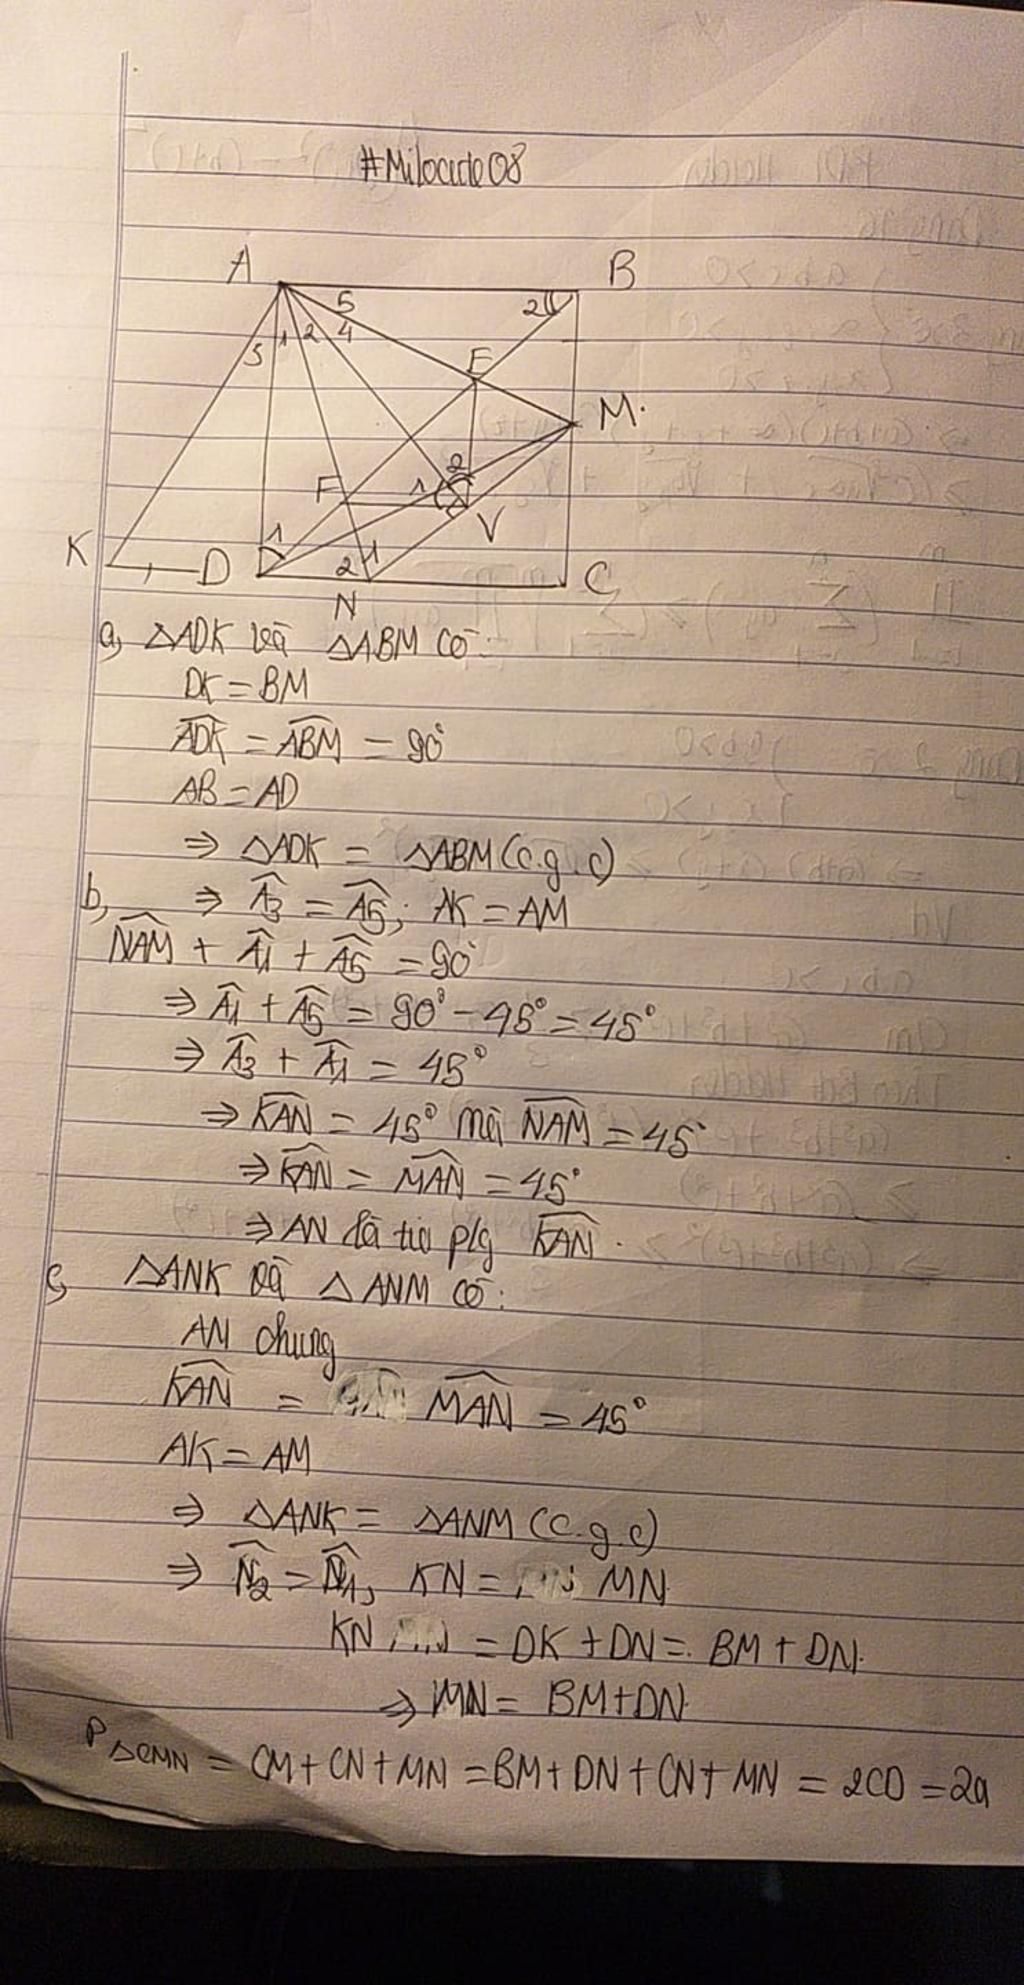 #Milocute08
A B
5
1 2 4
3
2
E
M
2
F 1
V
K D 1 2 1 C
N
a, △ADK và △ABM có:
DK = BM
ADK = ABM = 90°
AB = AD
⇒ △ADK = △ABM (c.g.c)
b, ⇒ A3 = A5; AK = AM
NAM + A1 + A5 = 90°
⇒ A1 + A5 = 90° - 45° = 45°
⇒ A3 + A1 = 45°
⇒ KAN = 45° mà NAM = 45°
⇒ KAN = MAN = 45°
⇒ AN là tia p/g KAN.
c, △ANK và △ANM có:
AN chung
KAN = MAN = 45°
AK = AM
⇒ △ANK = △ANM (c.g.c)
⇒ N2 = N1, KN = MN
KN = DK + DN = BM + DN.
⇒ MN = BM+DN
P△CMN = CM + CN + MN = BM + DN + CN + MN = 2CD = 2a